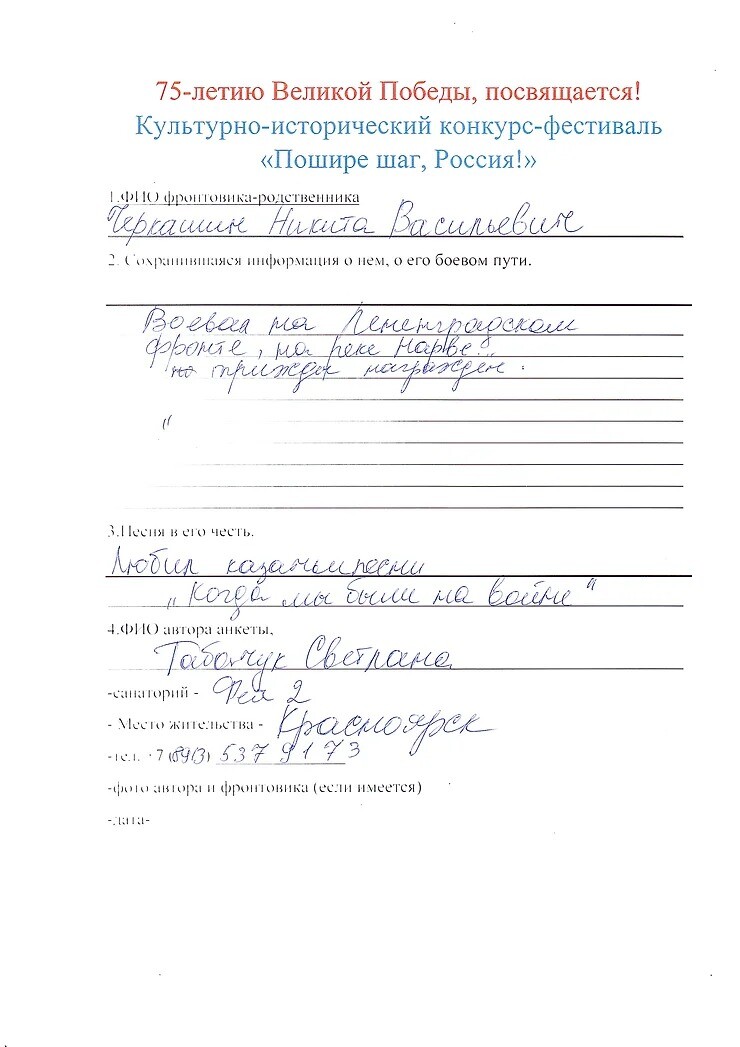 75-летию Великой Победы, посвящается!
Культурно-исторический конкурс-фестиваль
«Пошире шаг, Россия!»
1.ФИО фронтовика-родственника
Черкашин Никита Васильевич
2. Сохранившаяся информация о нем, о его боевом пути.
Воевал на Лененградском
фронте, на реке Нарве.
трижды награжден.
3.Песня в его честь.
Любил казачьи песни
„Когда мы были на войне"
4.ФИО автора анкеты,
Табончук Светлана
-санаторий -
- Место жительства - Красноярск
-тел. +7 (8913) 537 9173
-фото автора и фронтовика (если имеется)
-дата-